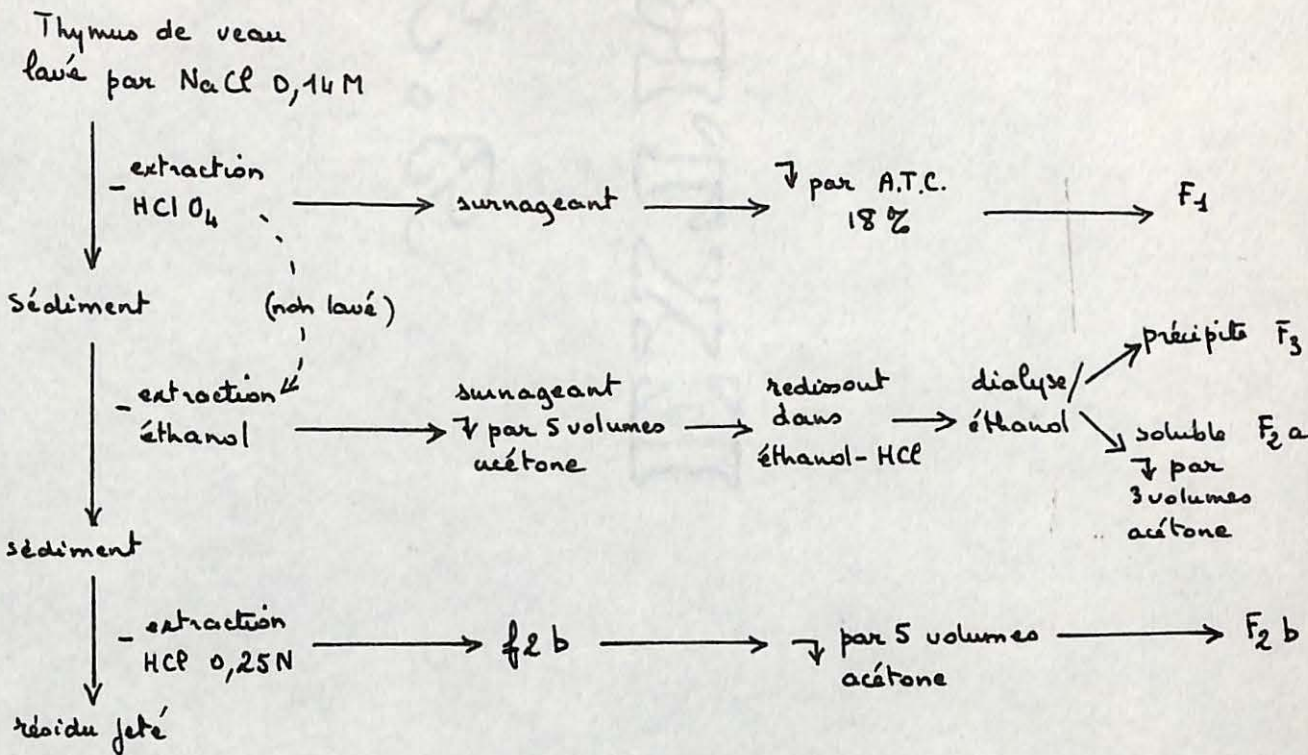 Thymus de veau
lavé par NaCl 0,14M
- extraction
HClO4
surnageant
↓ par A.T.C.
18%
F1
Sédiment
(non lavé)
- extraction
éthanol
surnageant
↓ par 5 volumes
acétone
redissout
dans
éthanol-HCl
dialyse/
éthanol
précipite F3
soluble F2a
↓ par
3 volumes
acétone
sédiment
- extraction
HCl 0,25N
f2b
↓ par 5 volumes
acétone
F2b
résidu jeté